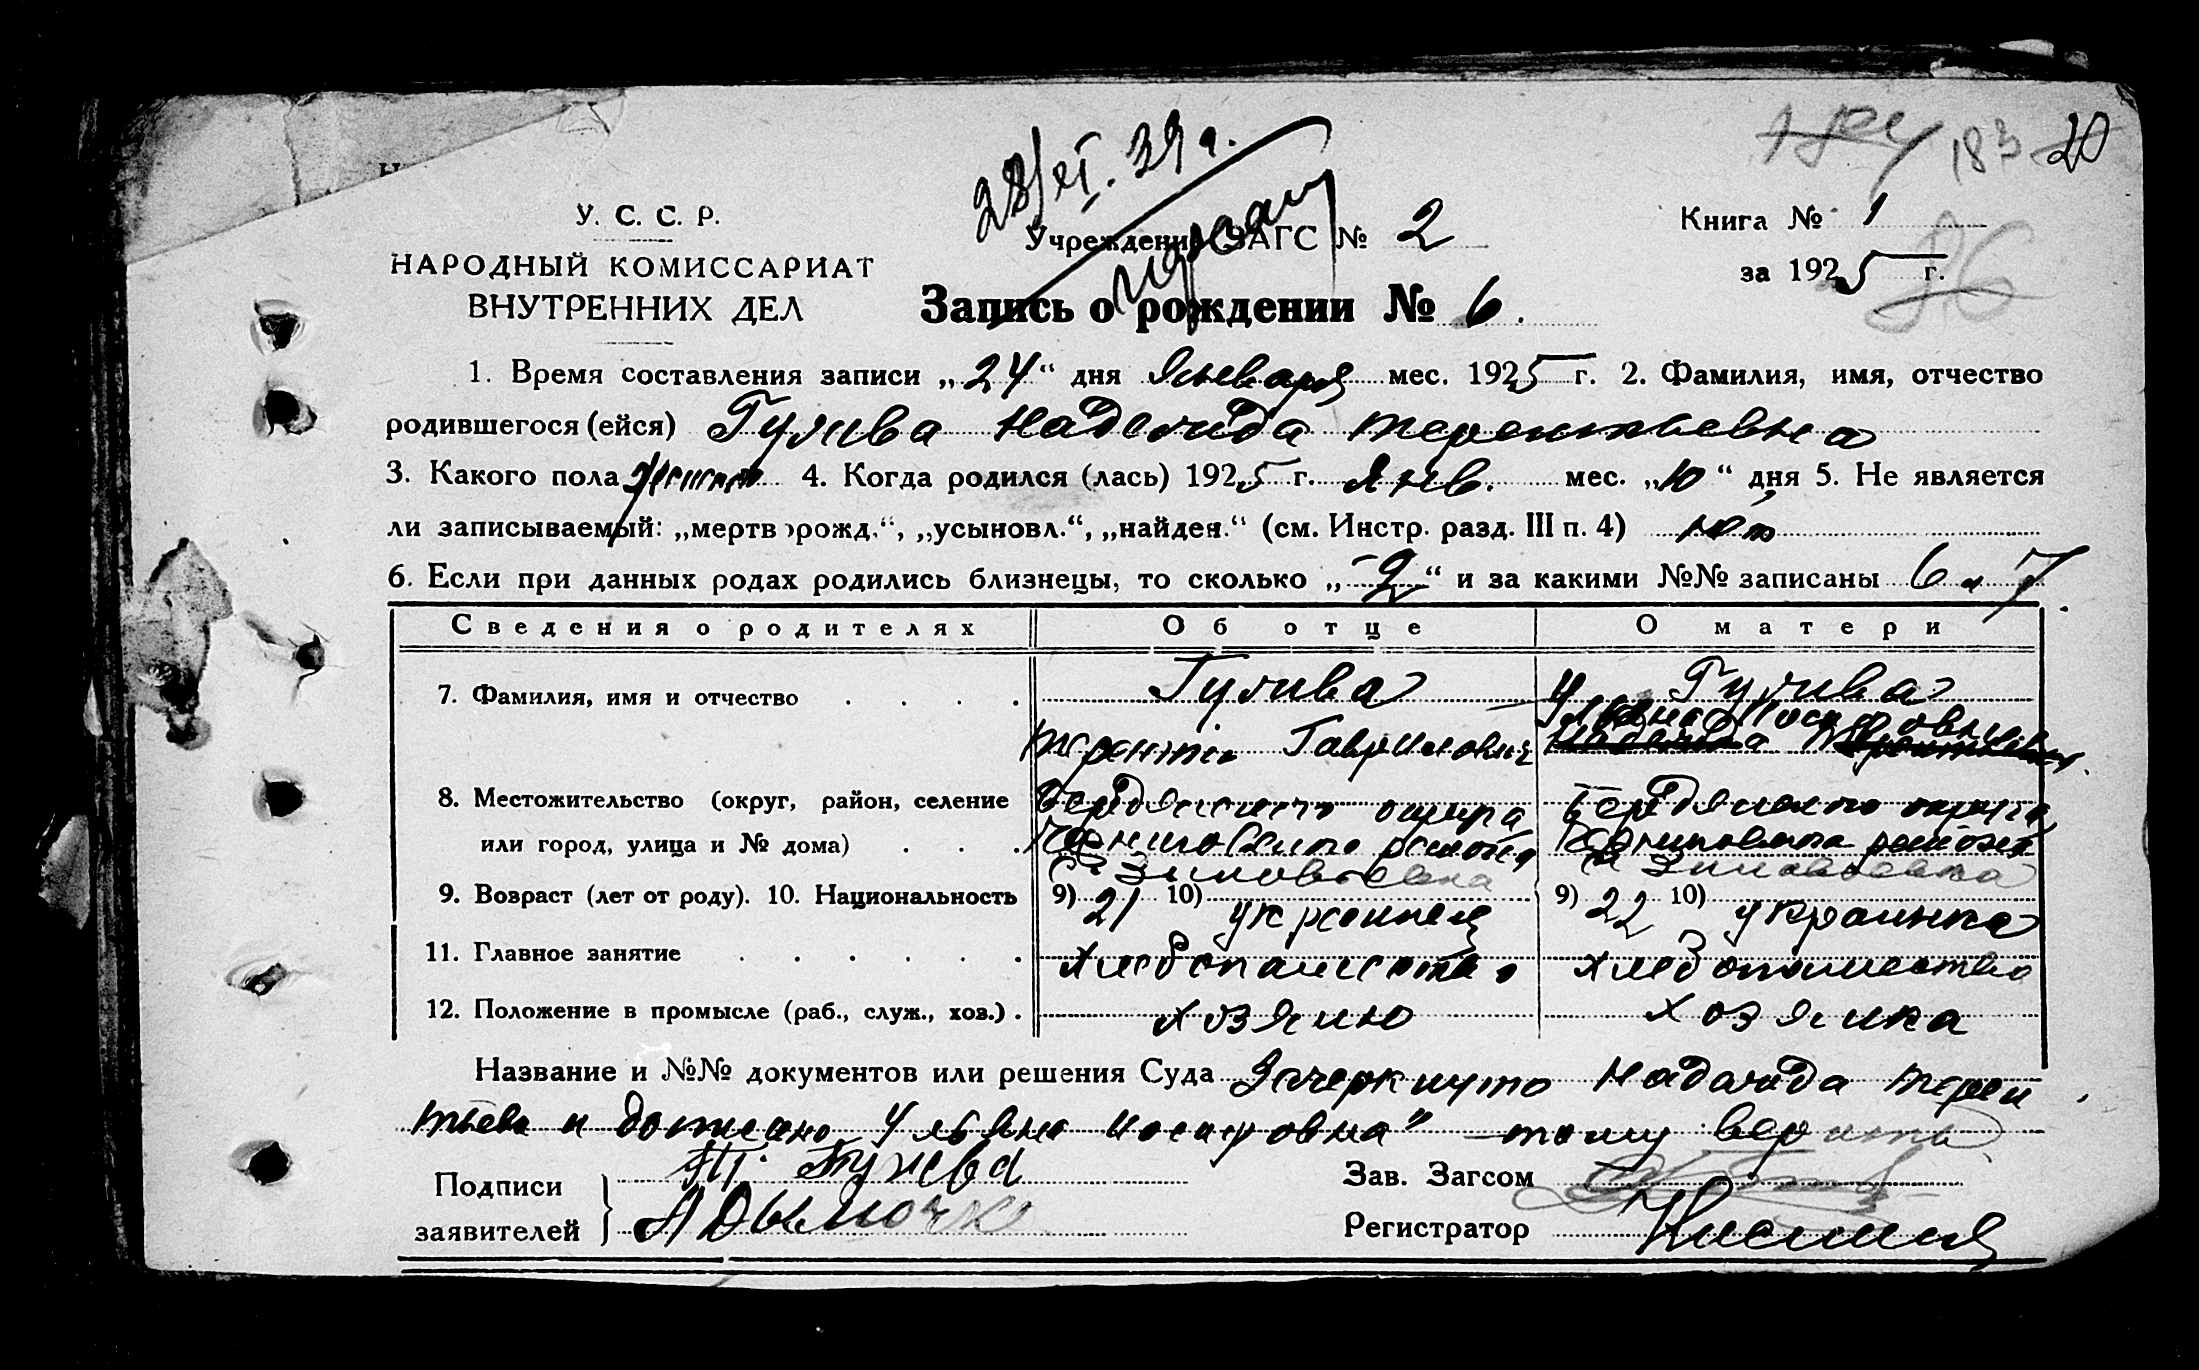 28/XI.39 г.
183 20
У. С. С. Р.
НАРОДНЫЙ КОМИССАРИАТ
ВНУТРЕННИХ ДЕЛ
Учреждение ЗАГС № 2
Книга № 1
за 1925 г.
26
Запись о рождении № 6.
1. Время составления записи „24“ дня Января мес. 1925 г. 2. Фамилия, имя, отчество
родившегося (ейся) Гулива Надежда Терентьевна
3. Какого пола женск 4. Когда родился (лась) 1925 г. Янв. мес. „10“ дня 5. Не является
ли записываемый: „мерт­ворожд.“, „усыновл.“, „найден.“ (см. Инстр. разд. III п. 4) нет
6. Если при данных родах родились близнецы, то сколько „2“ и за какими №№ записаны 6 и 7.
Сведения о родителях Об отце О матери
7. Фамилия, имя и отчество Гулива Гулива
Ульяна Иосифовна
Терентий Гаврилович Надежда Терентьев
8. Местожительство (округ, район, селение Бердянского округа Бердянского округа
или город, улица и № дома) Черниговского района Черниговского района
с. Зиновьевка с. Зиновьевка
9. Возраст (лет от роду). 10. Национальность 9) 21 10) украинец 9) 22 10) украинка
11. Главное занятие хлебопашество хлебопашество
12. Положение в промысле (раб., служ., хоз.) хозяин хозяйка
Название и №№ документов или решения Суда Зачеркнуто Надежда Терен
тьевн и дописано Ульяна Иосифовна" тому верить
Подписи заявителей Т. Гулева
Зав. Загсом
Регистратор